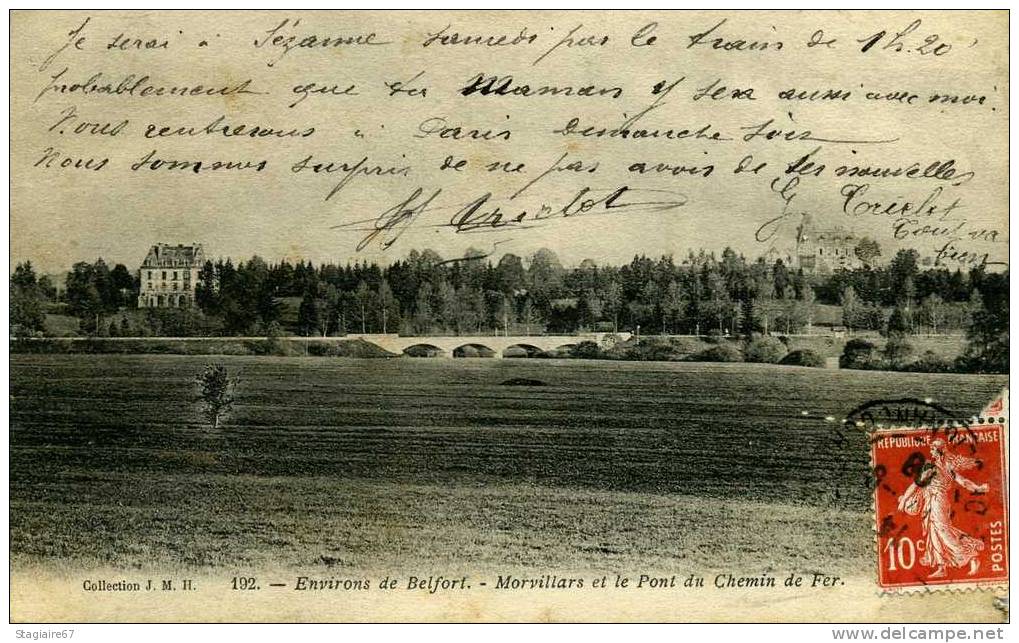 Je serai à Sézanne samedi par le train de 1h.20'
probablement que ta Maman y sera aussi avec moi.
Nous rentrerons à Paris Dimanche soir
Nous sommes surpris de ne pas avois de tes nouvelles
G Cruchot
Tout va
bien
RÉPUBLIQUE FRANÇAISE
10c
POSTES
Collection J. M. H. 192. — Environs de Belfort. - Morvillars et le Pont du Chemin de Fer.
Stagiaire67
www.delcampe.net